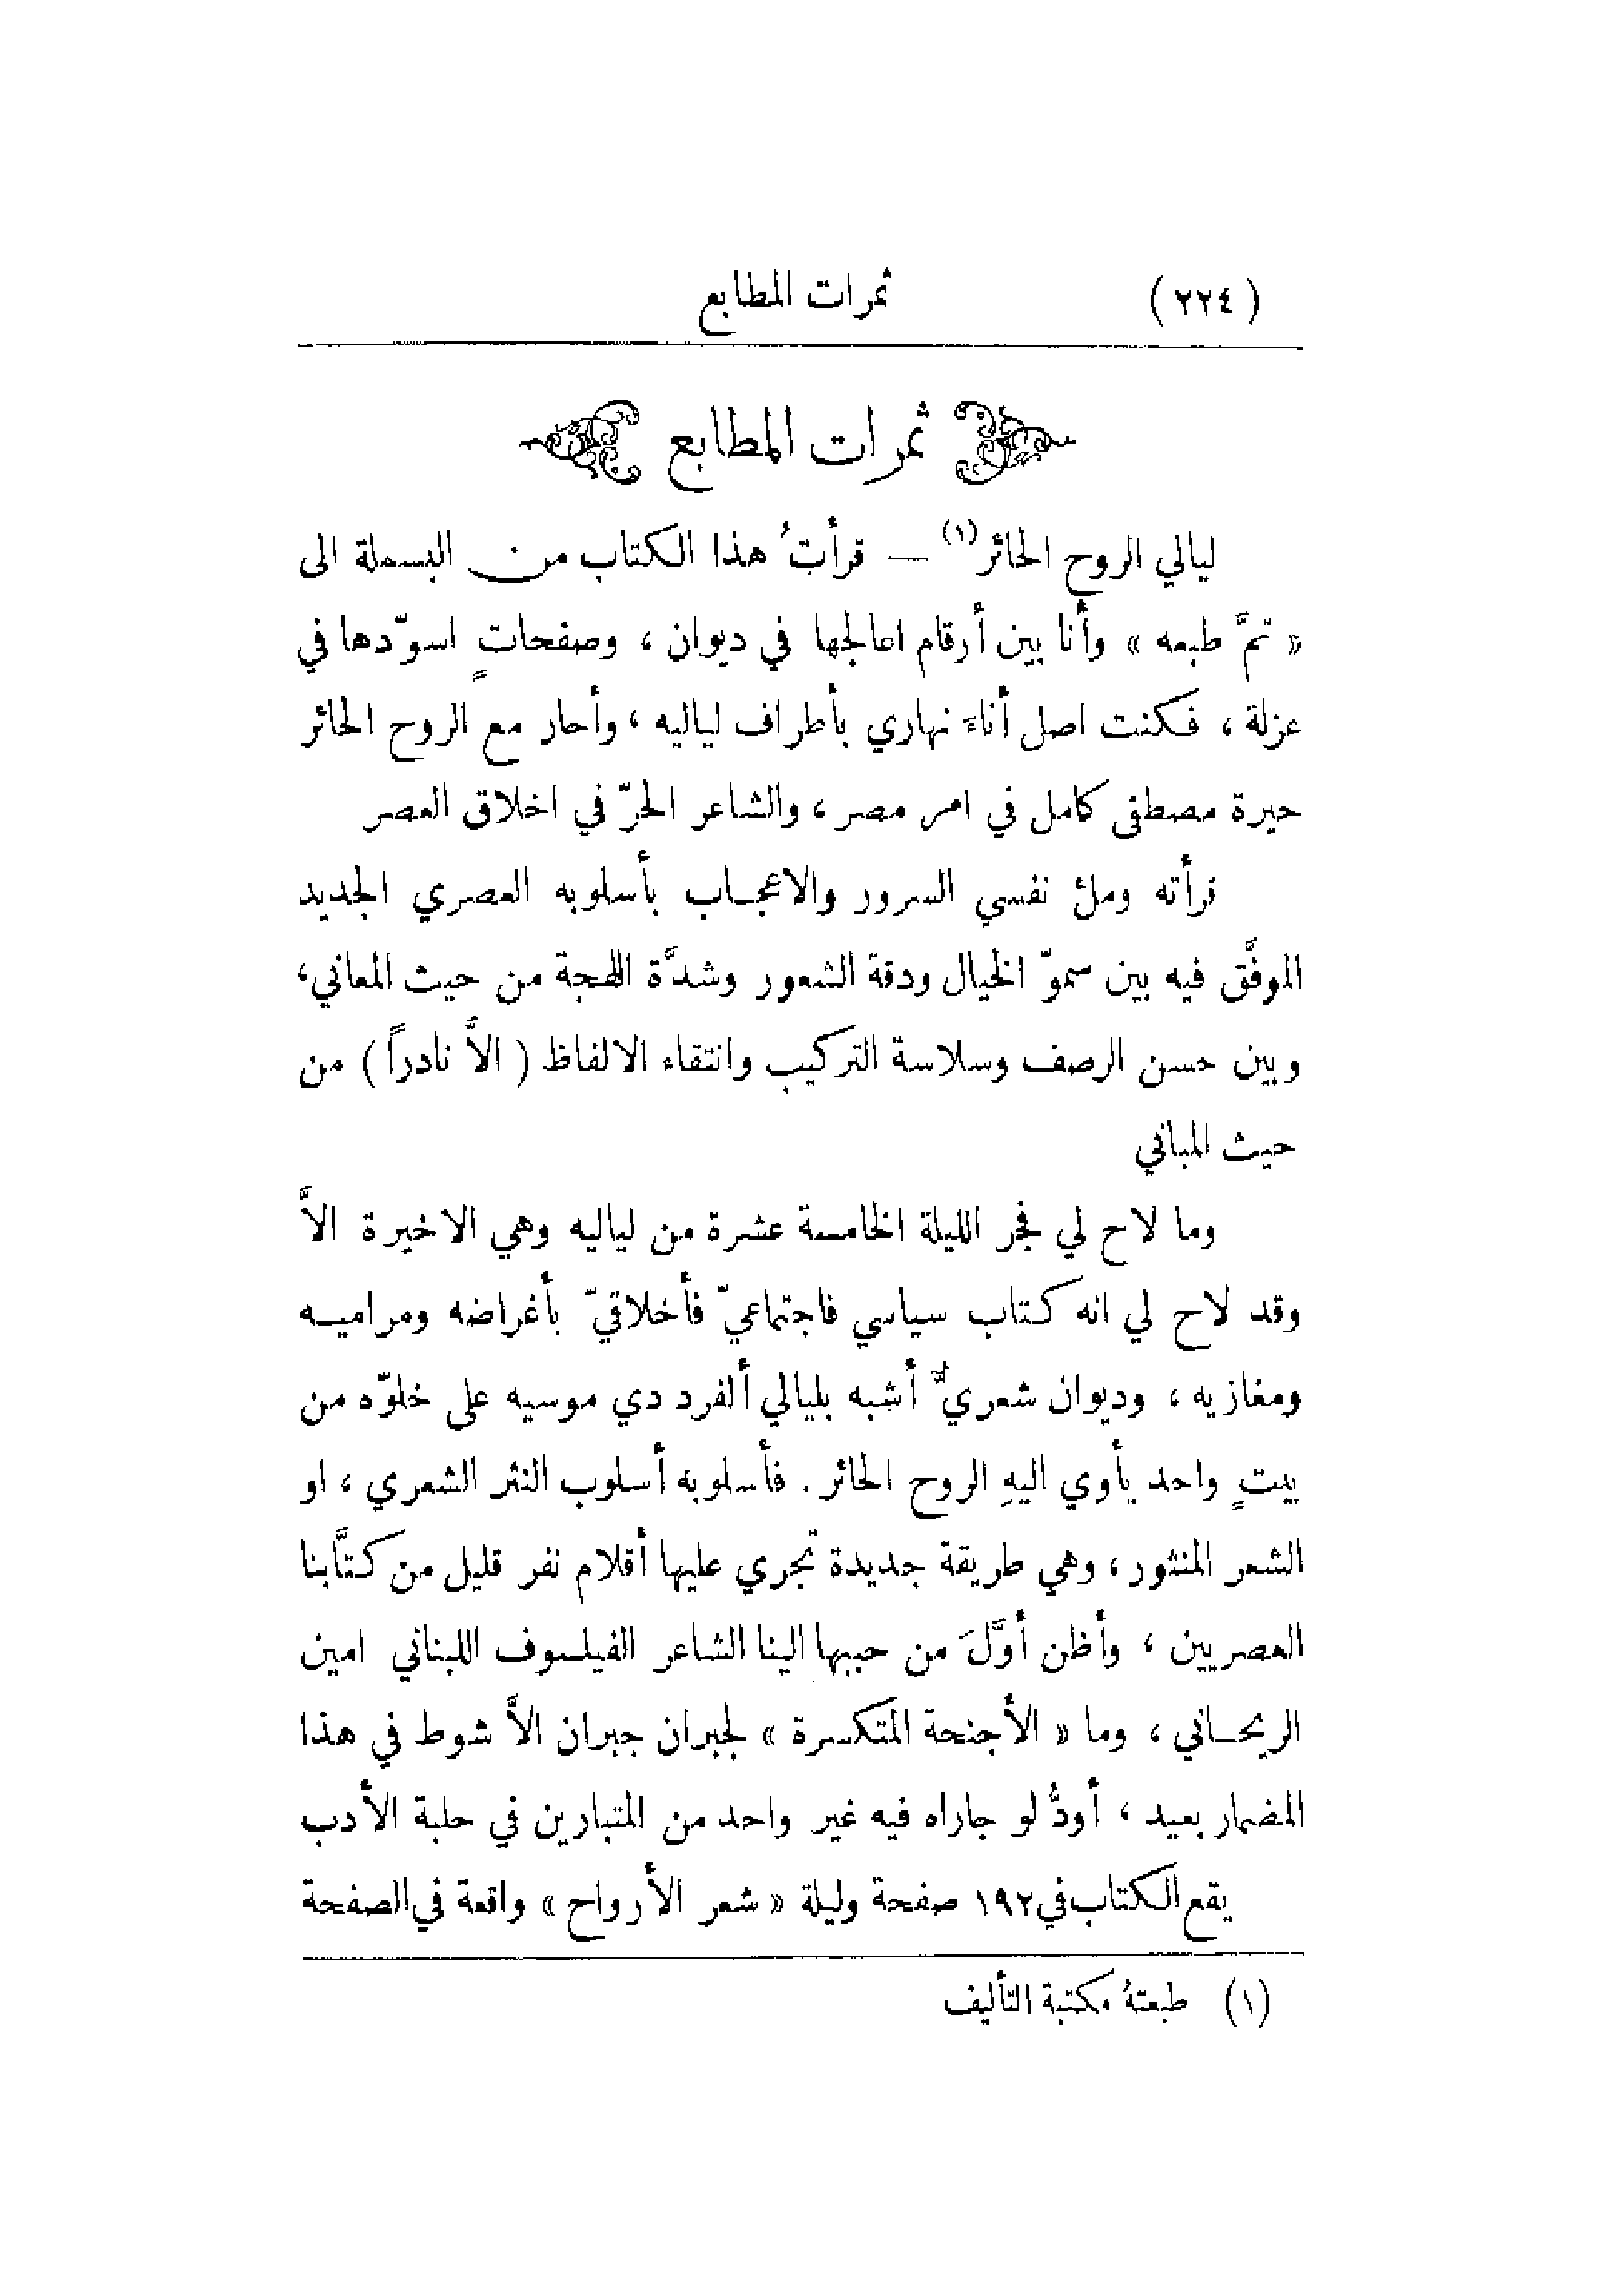 ( ٢٢٤ ) ثمرات المطابع
ثمرات المطابع
ليالي الروح الحائر (١) — قرأتُ هذا الكتاب من البسملة الى
« تمَّ طبعه » وأنا بين أرقام اعالجها في ديوان ، وصفحاتٍ اسوّدها في
عزلة ، فكنت اصل أناءَ نهاري بأطراف لياليه ، وأحار مع الروح الحائر
حيرة مصطفى كامل في امر مصر ، والشاعر الحرّ في اخلاق العصر
قرأته وملئ نفسي السرور والاعجاب بأسلوبه العصري الجديد
الموفَّق فيه بين سموّ الخيال ودقة الشعور وشدَّة اللهجة من حيث المعاني ،
وبين حسن الرصف وسلاسة التركيب وانتقاء الالفاظ ( الاَّ نادراً ) من
حيث المباني
وما لاح لي فجر الليلة الخامسة عشرة من لياليه وهي الاخيرة الاَّ
وقد لاح لي انه كتاب سياسي فاجتماعيّ فأخلاقيّ بأغراضه ومراميه
ومغازيه ، وديوان شعريٌّ أشبه بليالي ألفرد دي موسيه على خلوّه من
بيتٍ واحد يأوي اليهِ الروح الحائر . فأسلوبه أسلوب النثر الشعري ، او
الشعر المنثور ، وهي طريقة جديدة تجري عليها أقلام نفر قليل من كتَّابنا
العصريين ، وأظن أوَّلَ من حببها الينا الشاعر الفيلسوف اللبناني امين
الريحاني ، وما « الأجنحة المتكسرة » لجبران جبران الاَّ شوط في هذا
المضمار بعيد ، أودُّ لو جاراه فيه غير واحد من المتبارين في حلبة الأدب
يقع الكتاب في ١٩٢ صفحة وليلة « شعر الأرواح » واقعة في الصفحة
(١) طبعتهُ مكتبة التأليف